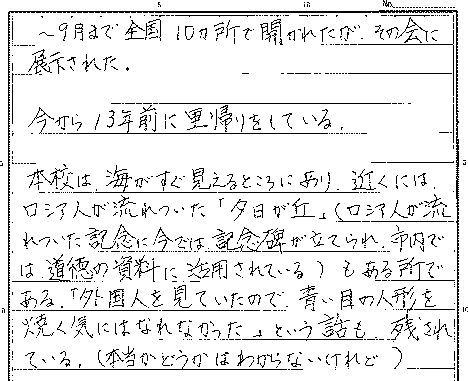 No.
〜9月まで全国10カ所で開かれたが、その会に
展示された。
今から13年前に里帰りをしている。
本校は、海がすぐ見えるところにあり、近くには、
ロシア人が流れついた「夕日が丘」(ロシア人が流
れついた記念に今では記念碑が立てられ、市内で
は道徳の資料に活用されている)もある所で
ある。「外国人を見ていたので、青い目の人形を
焼く気にはなれなかった」という話も、残され
ている。(本当かどうかはわからないけれど)